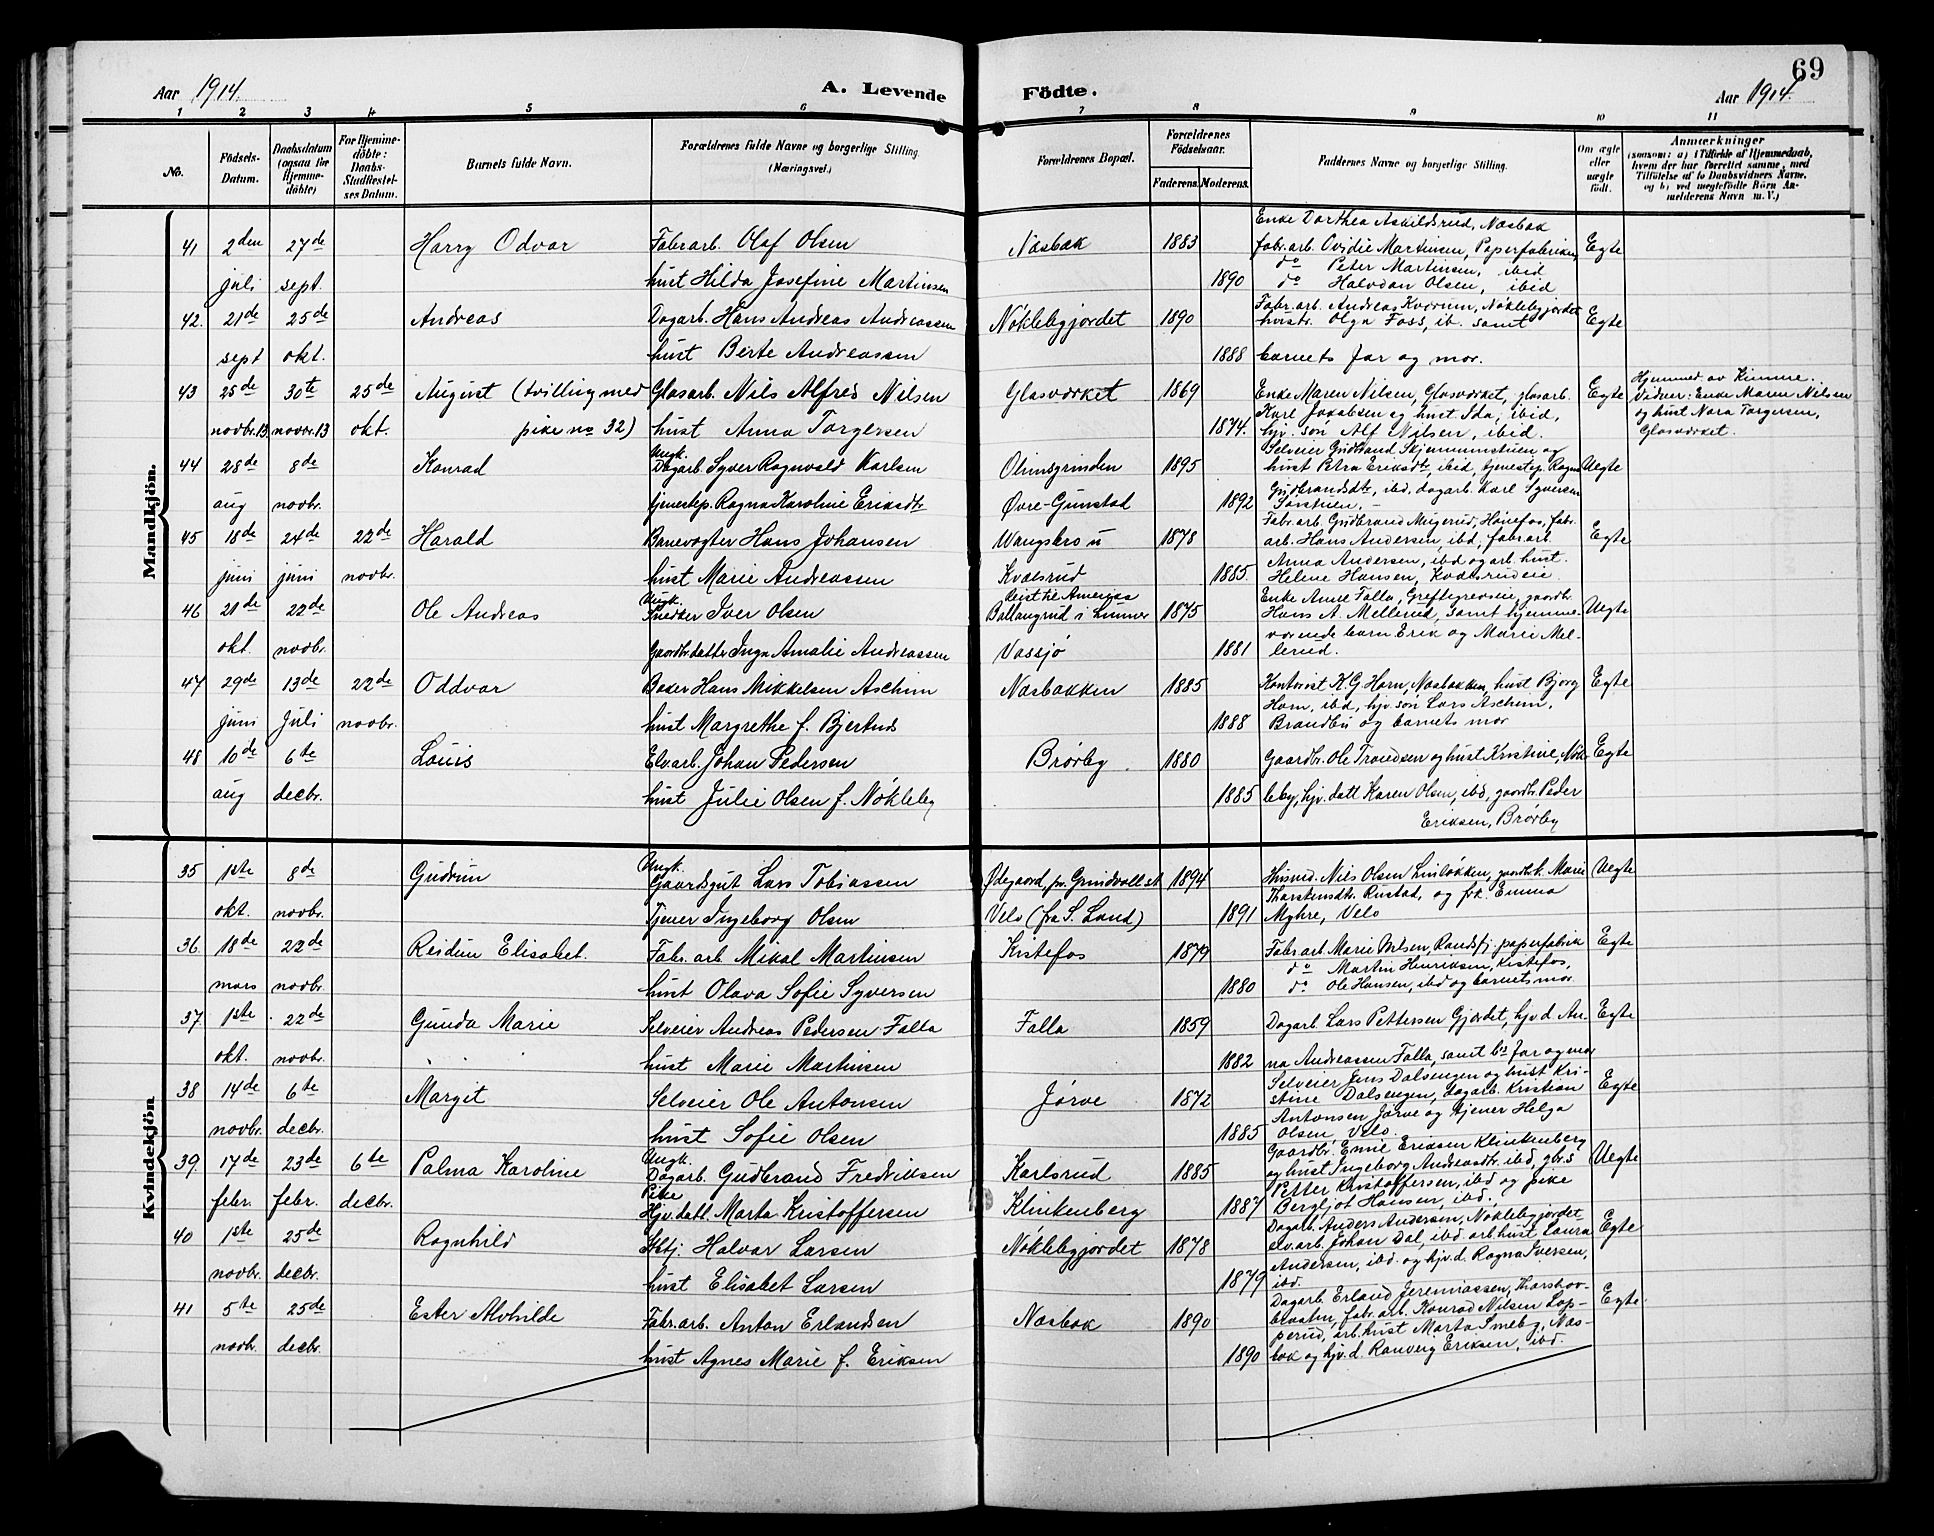 69
Aar 1914. A. Levende Födte. Aar 1914.
1 2 3 4 5 6 7 8 9 10 11
No. Födsels-Datum. Daabsdatum (ogsaa for Hjemme-döbte) For Hjemme-döbte: Daabs-Stadfæstel-ses Datum. Barnets fulde Navn. Forældrenes fulde Navne og borgerlige Stilling (Næringsvei.) Forældrenes Bopæl. Forældrenes Födselsaar. Faderens. Moderens. Faddernes Navne og borgerlige Stilling. Om ægte eller uægte födt. Anmærkninger (saasom: a) i Tilfælde af Hjemmedaab, hvem der har forrettet samme, med Tilföielse af to Daabsvidners Navne, og b) ved uægtefödte Börn An-melderens Navn m. V.)
Mandkjön.
Enke Dorthea Askildsrud, Næsbak
41 2den 27de Harry Odvar Fabr.arb. Olaf Olsen Næsbak 1883 fabr.arb. Ovidie Martinsen, Papirfabriken, Egte
do Peter Martinsen, ibid
juli sept. hust Hilda Josefine Martinsen 1890 do Halvdan Olsen, ibid
Fabr.arb. Andreas Kværum, Nøklebygjordet
42. 21de 25de Andreas Dagarb. Hans Andreas Andreassen Nøklebygjordet 1890 hustr. Olga Foss, ib. samt Egte
sept okt. hust Berte Andreassen 1888 barnets far og mor.
43 25de 30te 25de August (tvilling med Glasarb. Nils Alfred Nilsen Glasværket 1869 Enke Maren Nilsen, Glasværket, glasarb. Egte Hjemmed. av Kimme.
Karl Jakobsen og hust Ida, ibid, Vidner: Enke Maren Nilsen
novbr.13 novbr.13 okt. pike no 32) hust Anna Torgersen 1874. hjv. søn Alf Nilsen, ibid. og hust Nora Torgersen, Glasværket.
Selveier Gudbrand Skjennumstuen og
44 28de 8de Konrad Ungk. Dagarb. Syver Ragnvald Karlsen Olimsgrinden 1895 hust Petra Eriksdtr, ibid, tjenestep. Ragna Uegte
aug novbr. tjenestep. Ragna Karoline Eriksdtr Øvre-Gunstad 1892 Gudbrandsdtr, ibd. dagarb. Karl Syversen
Fabr.arb. Gudbrand Mugerud, Hønefos, fabr.
45 18de 24de 22de Harald Banevogter Hans Johansen Wangskro u 1878 arb. Hans Andersen, ibd, fabr.arb Egte
Anna Andersen, ibd og arb. hust.
juni juni novbr. hust Marie Andreassen Kvælsrud 1885. Helene Hansen, Kvælsrudeie
reist til Amerika Enke Anne Falla, Greftegreveie, gaardbr.
46 21de 22de Ole Andreas Ungk. Snedker Iver Olsen Ballangrud i Lunner 1875 Hans A. Mellerud, samt hjemme- Uegte
værende barn Erik og Marie Mel-
okt. novbr. Gaardbr.datter Inga Amalie Andreassen Vassjø 1881 lerud.
47 29de 13de 22de Oddvar Baker Hans Mikkelsen Aschim Næsbakken 1885 Kontorist K.G. Horn, Næsbakken, hust Bjørg Egte
Horn, ibid, hjv. søn Lars Aschim,
juni Juli novbr. hust Margrethe f. Bjertnes 1888 Brandbu og barnets mor
48 10de 6te Louis Elv.arb. Johan Pedersen Brørby 1880 Gaardbr. Ole Trondsen og hust Kristine, Nøk- Egte
aug decbr. hust Julie Olsen f. Nøkleby 1885 leby, hjv. datt Karen Olsen, ibd, gaardbr. Peder
Eriksen, Brørby
Kvindekjön
35 1ste 8de Gudrun Ungk. Gaardsgut Lars Tobiassen Ødegaard, pr. Grindvoll st 1894 Husmd. Nils Olsen Linløkken, gaardbr.k. Marie Uegte
Thorstensdtr. Rustad, og frk. Emma
okt. novbr. Tjener Ingeborg Olsen Velo (fra S. Land) 1891 Myhre, Velo
36. 18de 22de Reidun Elisabet. Fabr.arb. Mikal Martinsen Kistefos 1879 Fabr.arb. Marie Nilsen, Randsfj. papirfabrik Egte
do Martin Henriksen, Kistefos,
mars novbr. hust Olava Sofie Syversen 1880 do Ole Hansen, ibd og barnets mor
37. 1ste 22de Gunda Marie Selveier Andreas Pedersen Falla Falla 1859 Dagarb. Lars Pettersen Gjordet, hjv. d An- Egte
okt. novbr. hust Marie Martinsen 1882 na Andreassen Falla, samt bs far og mor
Selveier Jens Dalsengen og hust Kri-
38 14de 6te Margit Selveier Ole Antonsen Jørve 1872 stine Dalsengen, dagarb. Kristian Egte
Antonsen Jørve og tjener Helga
novbr. decbr. hust Sofie Olsen 1885 Olsen, Velo.
Gaardbr. Emil Eriksen Klinkenberg
39. 17de 23de 6te Palma Karoline Ungk. Dagarb. Gudbrand Fredriksen Karlsrud 1885 og hust Ingeborg Andreasdtr. ibd, gbr.s Uegte
Petter Kristoffersen, ibd og pike
febr. febr. decbr. Pike Hjv. datt. Marta Kristoffersen Klinkenberg 1887 Bergljot Hansen, ibd.
Dagarb. Anders Andersen, Nøklebygjordet
40 1ste 25de Ragnhild Halvar Larsen Nøklebygjordet 1878 elv.arb. Johan Dal, ibd arb.hust Laura Egte
Andersen, ibd. og hjv.d. Ragna Iversen,
novbr. decbr. hust Elisabet Larsen 1879 ibd.
Dagarb. Erland Jeremiassen, Thorshov-
41 5te 25de Ester Alvhilde Fabr.arb. Anton Erlandsen Næsbak 1890 fabr.arb. Konrad Nilsen Lop- Egte
perud, arb.hust Marta Smeby, Næs-
novbr. decbr. hust Agnes Marie f. Eriksen 1890 bak og hjv.d. Ranveig Eriksen, ibd.